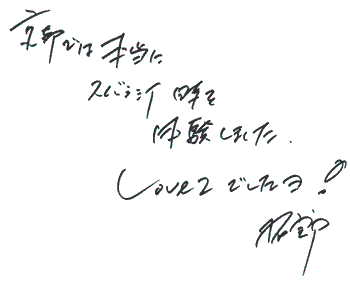 京都では本当に
スバラシイ時を
体験しました.
Love2でしたヨ!
拓郎